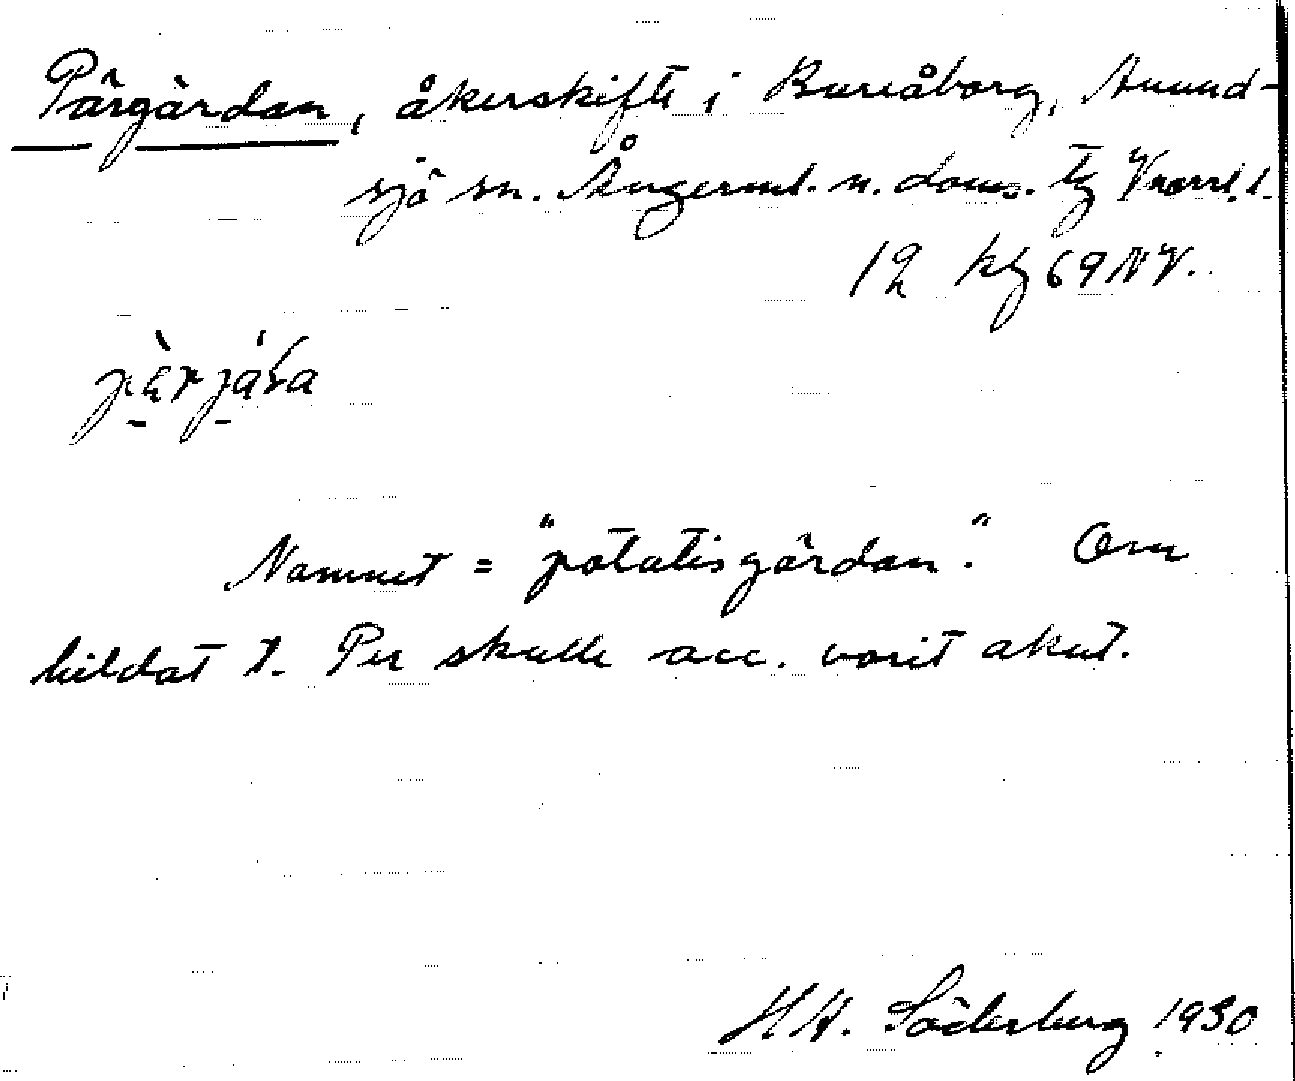 Pärgärdan, åkerskifte i Bureåborg, Anund-
sjö sn. Ångerml. n. doms. tg
12 kg 69 NV.
Namnet = "potatisgärdan." Om
bildat t. Per skulle acc. varit akut.
H.H. Söderberg 1930